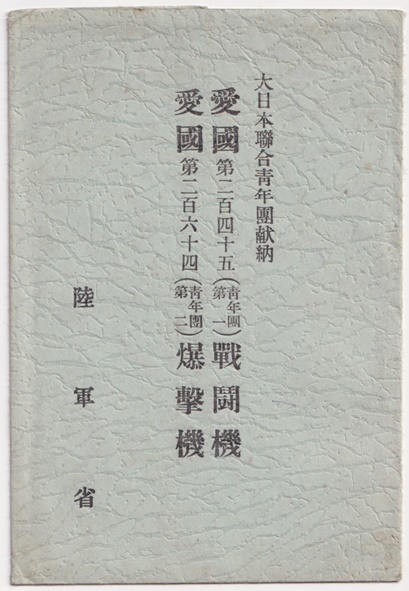 大日本聯合青年團献納
愛國第二百四十五（青年團第一）戰鬪機
愛國第二百六十四（青年團第二）爆擊機
陸軍省